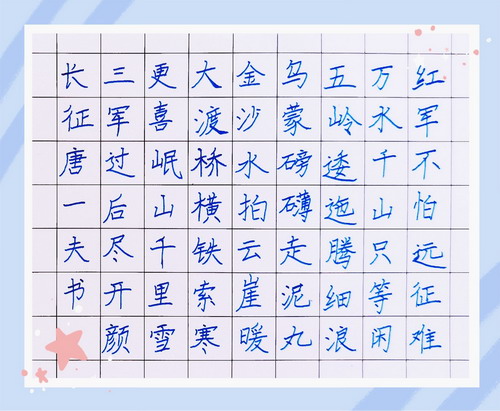 红军不怕远征难
万水千山只等闲
五岭逶迤腾细浪
乌蒙磅礴走泥丸
金沙水拍云崖暖
大渡桥横铁索寒
更喜岷山千里雪
三军过后尽开颜
长征唐一夫书